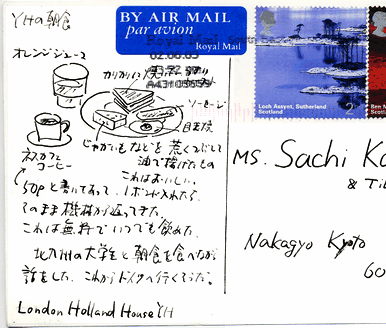 YHの朝食
オレンジジュース
カリカリトースト
ソーセージ
目玉焼
じゃがいもなどを荒くつぶして
油で揚げたもの
これはおいしい。
ネスカフェ
コーヒー
50pと書いてあって、1ポンド入れたら、
そのまま機械から返ってきた。
これは無料でいつでも飲めた。
北九州の大学生と朝食を食べながら
話をした。これからドイツへ行くそうだ。
London Holland House YH
BY AIR MAIL
par avion
Royal Mail
Loch Assynt, Sutherland
Scotland
2nd
Ben
Scotl
MS. Sachi K
& Ti
Nakagyo Kyoto
60